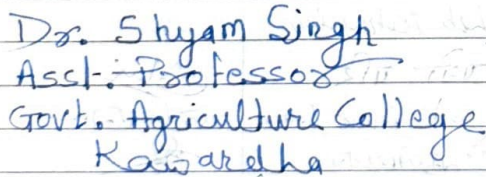 Dr. Shyam Singh
Asst. Professor
Govt. Agriculture College
Kawardha